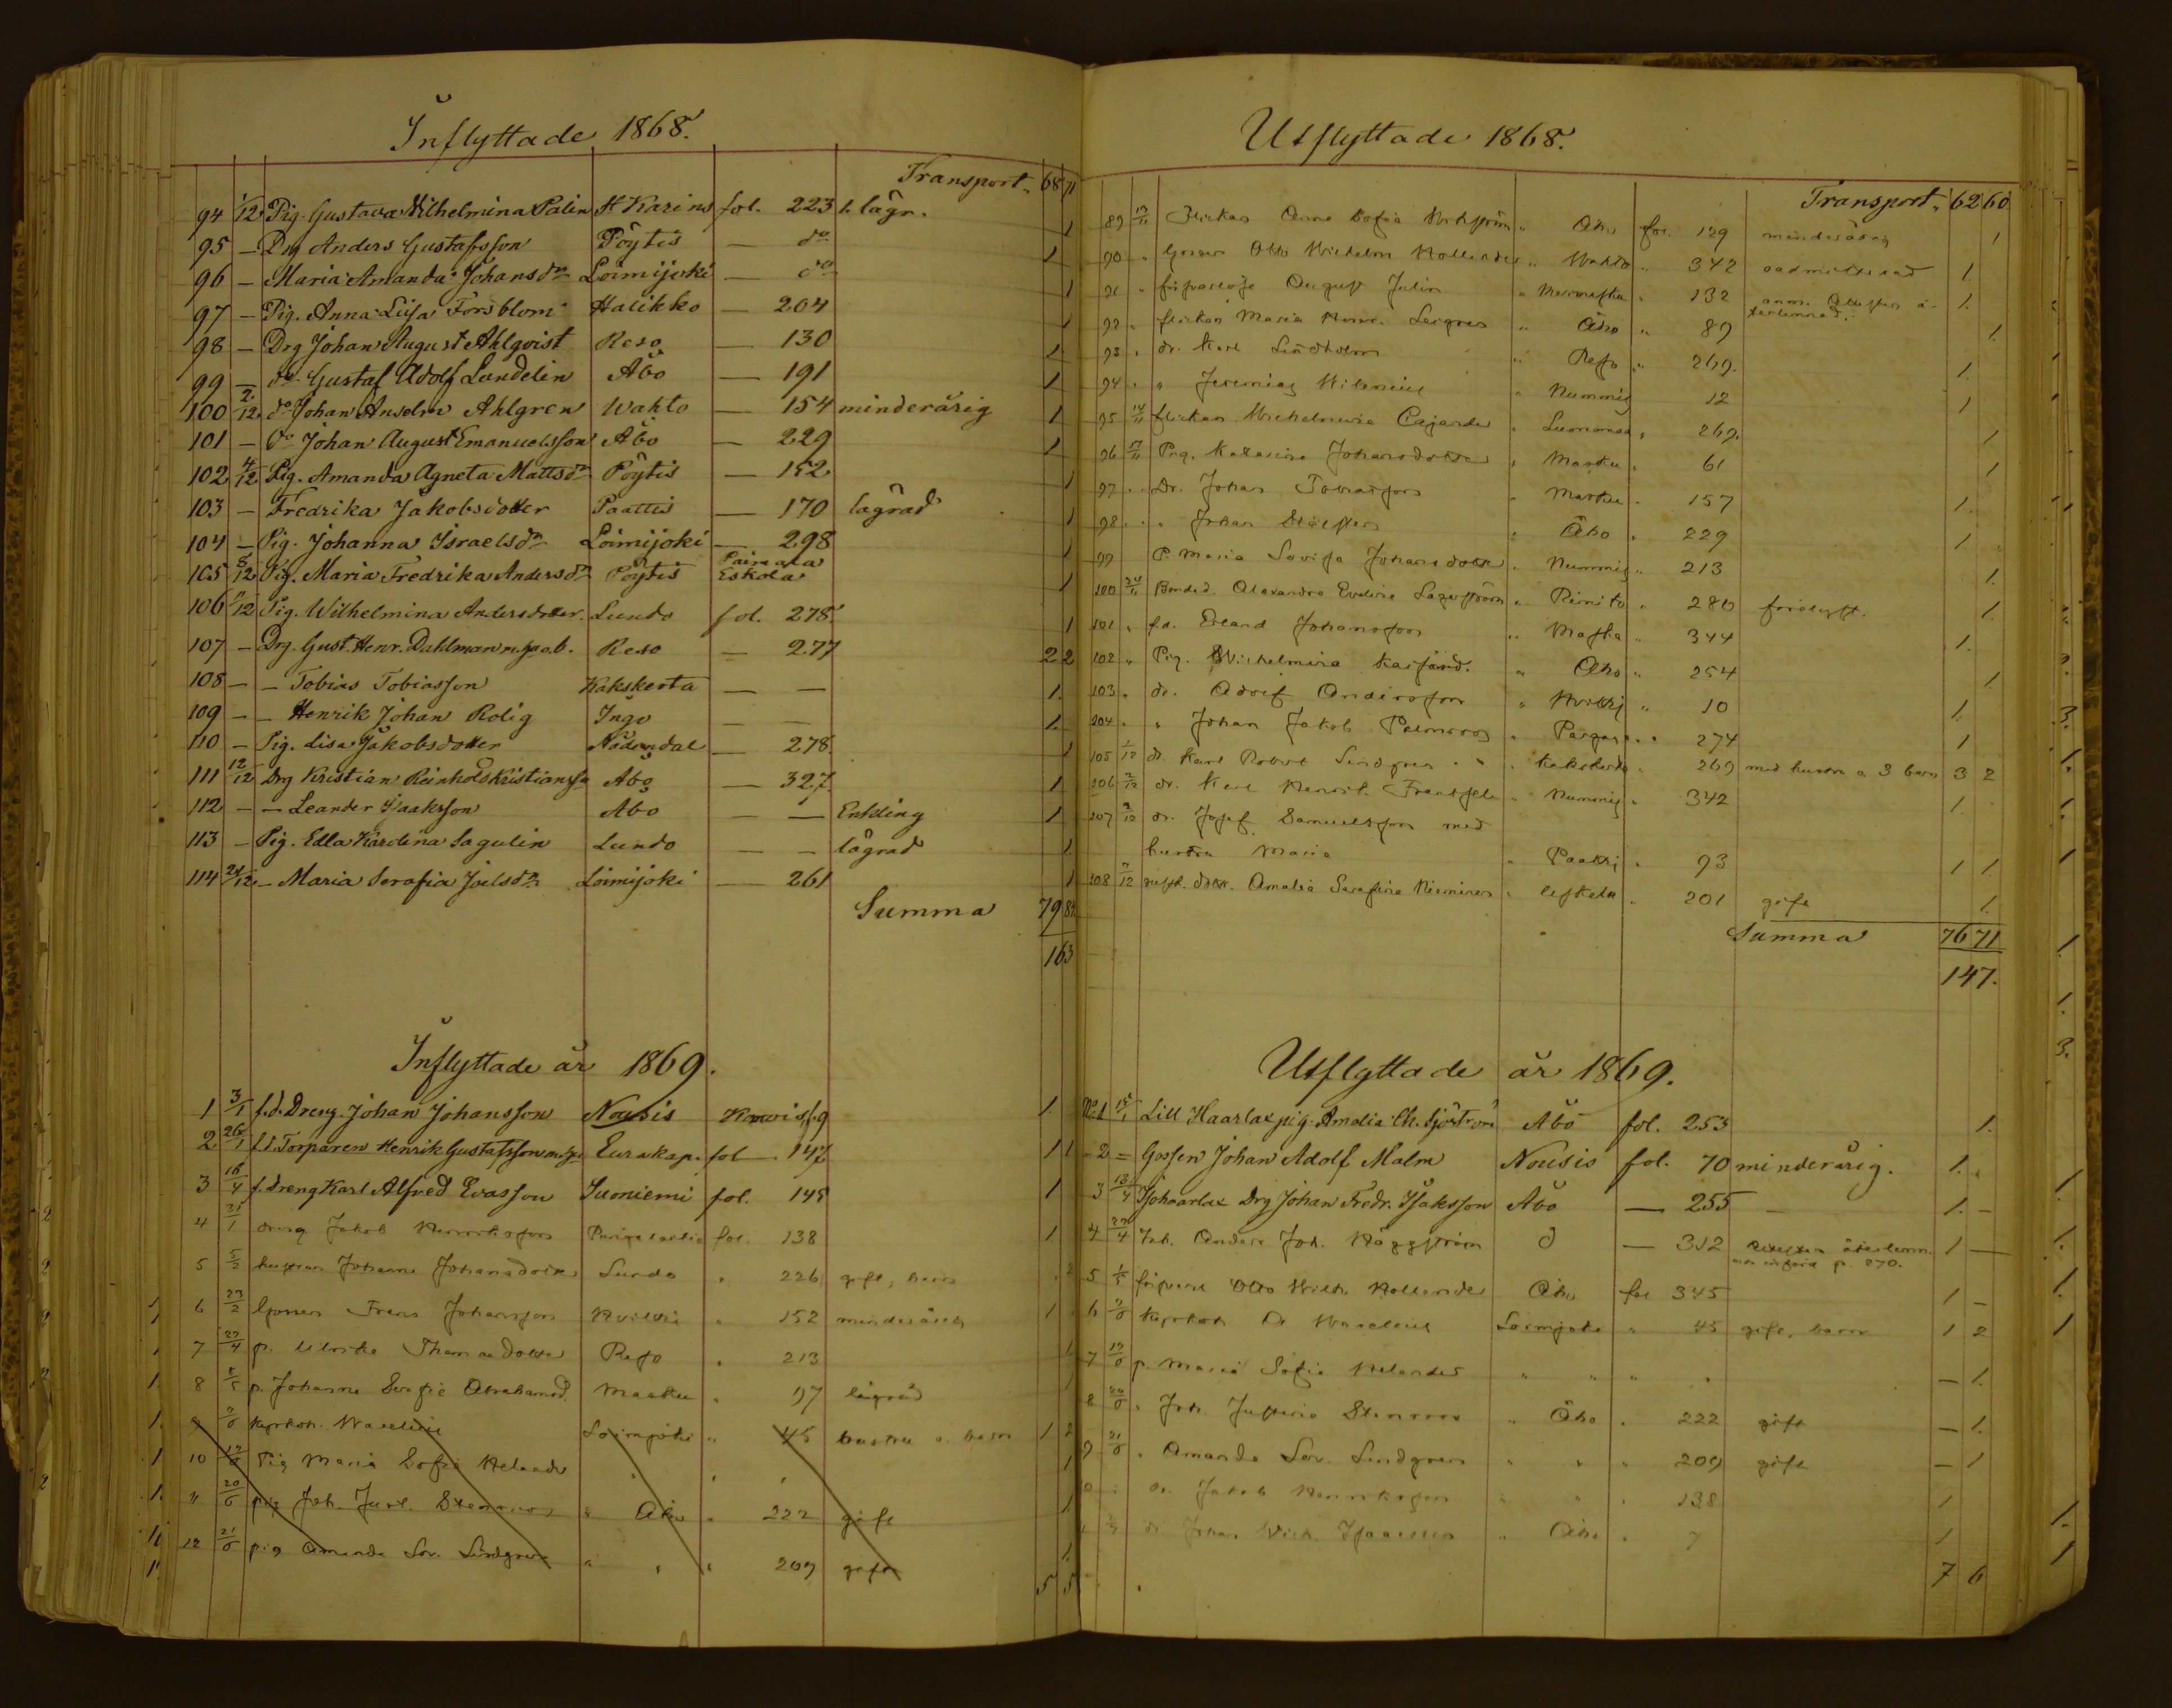 Inflyttade 1868.
Transport. 68 71
94 1/12 Pig. Gustava Wilhelmina Palin St Karins fol. 223 l. lägr. 1
95 — Drg Anders Gustafsson Pöytis — do 1
96 — Maria Amanda Johansdr Loimijoki — do 1
97 — Pig. Anna Lisa Forsblom Halikko — 204 1
98 — Drg Johan August Ahlqvist Reso — 130 1
99 — do Gustaf Adolf Lundelin Åbo — 191 1
100 2/12 do Johan Anselm Ahlgren Wahto — 154 minderårig 1
101 — do Johan August Emanuelsson Åbo — 229 1
102 4/12 Pig. Amanda Agneta Mattsdr Pöytis — 152 1
103 — Fredrika Jakobsdotter Paattis — 170 lägrad 1
104 — Pig. Johanna Israelsdr Loimijoki — 298 1
105 5/12 Pig. Maria Fredrika Andersdr Pöytis Eskola 1
106 /12 Pig. Wilhelmina Andersdotter. Lundo fol. 278. 1
107 — Drg. Gust. Henr. Dahlman Reso — 277 2 2
108 — — Tobias Tobiasson Kakskerta — — 1.
109 — — Henrik Johan Rolig Ingo — — 1.
110 — Pig. Lisa Jakobsdotter Nådendal — 278. 1
111 12/12 Drg Kristian Reinhold Kristiansson Åbo — 327. 1
112 — — Leander Isaaksson Åbo — — Enkling 1
113 — Pig. Edla Karolina Sagulin Lundo — — lägrad 1
114 24/12 — Maria Serafia Joelsdr Loimijoki — 261 1
Summa 79 84
163
Inflyttade år 1869.
1 3/1 f.d. Dreng. Johan Johansson Nousis 1.
2 26/1 f.d. Torparen Henrik Gustafsson Eurakap. fol 147 1 1
3 18/4 f. dreng Karl Alfred Evasson Suoniemi fol. 145 1
4 31/1 dreng Jakob Henriksson fol. 138 1
5 5/2 hustrun Johanna Johansdotter Lundo " 226 gift, barn
6 23/2 Gossen Frans Johansson " 152 minderårig 1
7 27/4 p. Ulrika Thomasdotter Reso " 213 1
8 8/5 p. Johanna Serafia Abrahamsd. Masku " 97 lägrad
9 Kaprkoh. Waselius Loimijoki " 45 hustru o. barn 1 2
10 Pig Maria Sofia Helander " " " 1
11 20/6 pig Joh. Just. Stenroos " Åbo " 222 gift 1
12 21/6 pig Amanda Lov. Lindgren " " " 209 gift 1.
5 5
Utflyttade 1868.
Transport. 62 60
89 /11 Flickan Anna Sofia " Åbo fol. 129 minderårig 1
90 " Gossen Otto Wilhelm Hollender " Wahto " 342 oadmitterad 1
91 " August Julin " " 132 anm. Attesten återlemnad. 1.
92 " flickan Maria Henr. " Åbo " 89 1
93 " dr. Karl Lindholm " Reso " 269. 1.
94 " " Jeremias " Nummis 12 1
95 14/11 flickan Wilhelmina Cajander " " 269. 1
96 17/11 Pig. Katarina Johansdotter " Masku " 61 1
97 " Dr. Johan Tobiasson " Masku " 157 1.
98 " " Johan " Åbo " 229 1
99 P. Maria Lovisa Johansdotter " Nummis " 213 1.
100 24/11 Bonded. Alexandra Evelina Lagerström " Rimito " 280 1.
101 " f.d. Erland Johansson " " 344 1.
102 " Pig. Wilhelmina " Åbo " 254 1
103 " dr. Adolf Andersson " " 10 1.
104 " " Johan Jakob Palmroos " Pargas " 274 1
105 1/12 dr. Karl Robert Lindgren " " Kakskerta " 269 med hustru o. 3 barn 3 2
106 2/12 dr. Karl Henrik " Nummis " 342 1.
107 /12 dr. Josef Samuelsson med
hustru Maria " Paattis " 93 1 1.
108 /12 dotter. Amalia Serafina Nieminen " " 201 gift 1.
Summa 76 71
147.
Utflyttade år 1869.
No 1 15/1 Lill Haarlax pig. Amalia Ch. Sjöström Åbo fol. 253 1.
2 — Gossen Johan Adolf Malm Nousis fol. 70 minderårig. 1.
3 13/4 Isohaarlax Drg Johan Fredr. Isaksson Åbo — 255 — 1. —
4 27/4 Inh. Anders Joh. Häggström — 312 Attesten återlemn. 1 —
införd p. 270.
5 1/5 Otto Wilh. Hollender Åbo fol 345 1 —
6 /6 Kaprkoh Waselius Loimijoki " 45 gift, barn 1 2
7 /6 p. Maria Sofia Helander " " " " — 1.
8 20/6 " Joh. Justina Stenroos " Åbo " 222 gift — 1.
9 21/6 " Amanda Lov. Lindgren " " " 209 gift — 1
dr. Jakob Henriksson " " " 138 1
dr. Johan Wilh. " Åbo " 7 1
7 6